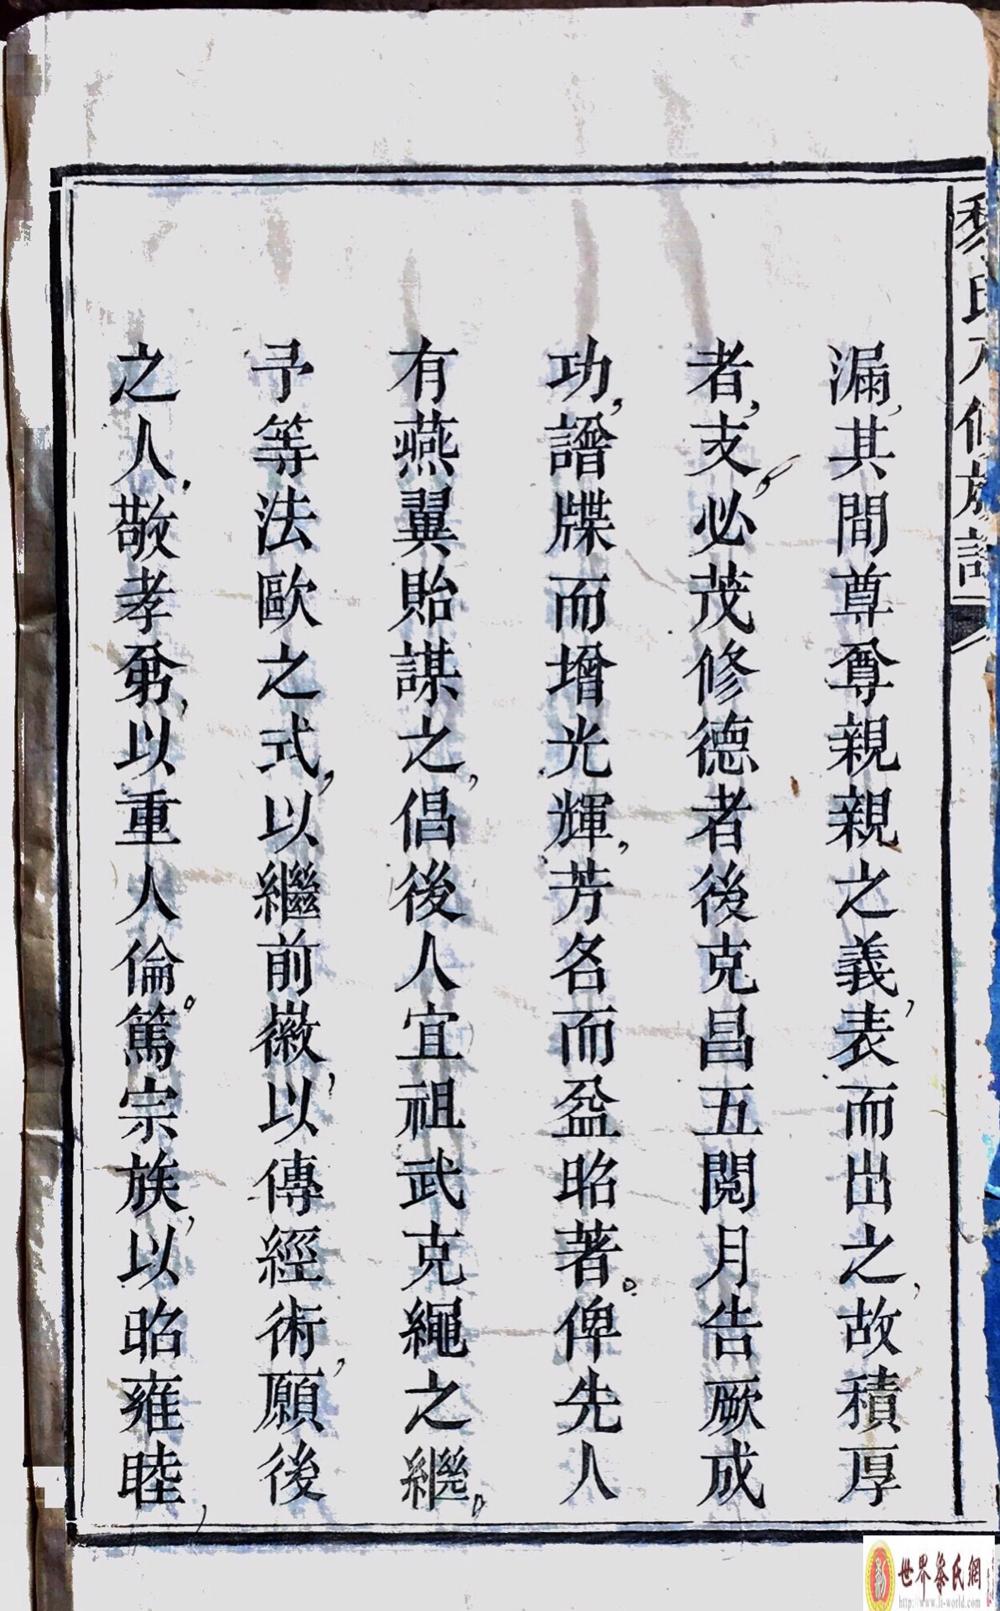 漏,其間尊尊親親之義,表而出之,故積厚
者,支必茂修德者後克昌五閱月告厥成
功,譜牒而增光輝,芳名而益昭著。俾先人
有燕翼貽謀之,倡後人宜祖武克繩之繼。
予等法歐之式,以繼前徽,以傳經術,願後
之人,敬孝弟,以重人倫。篤宗族,以昭雍睦,
世界黎氏網